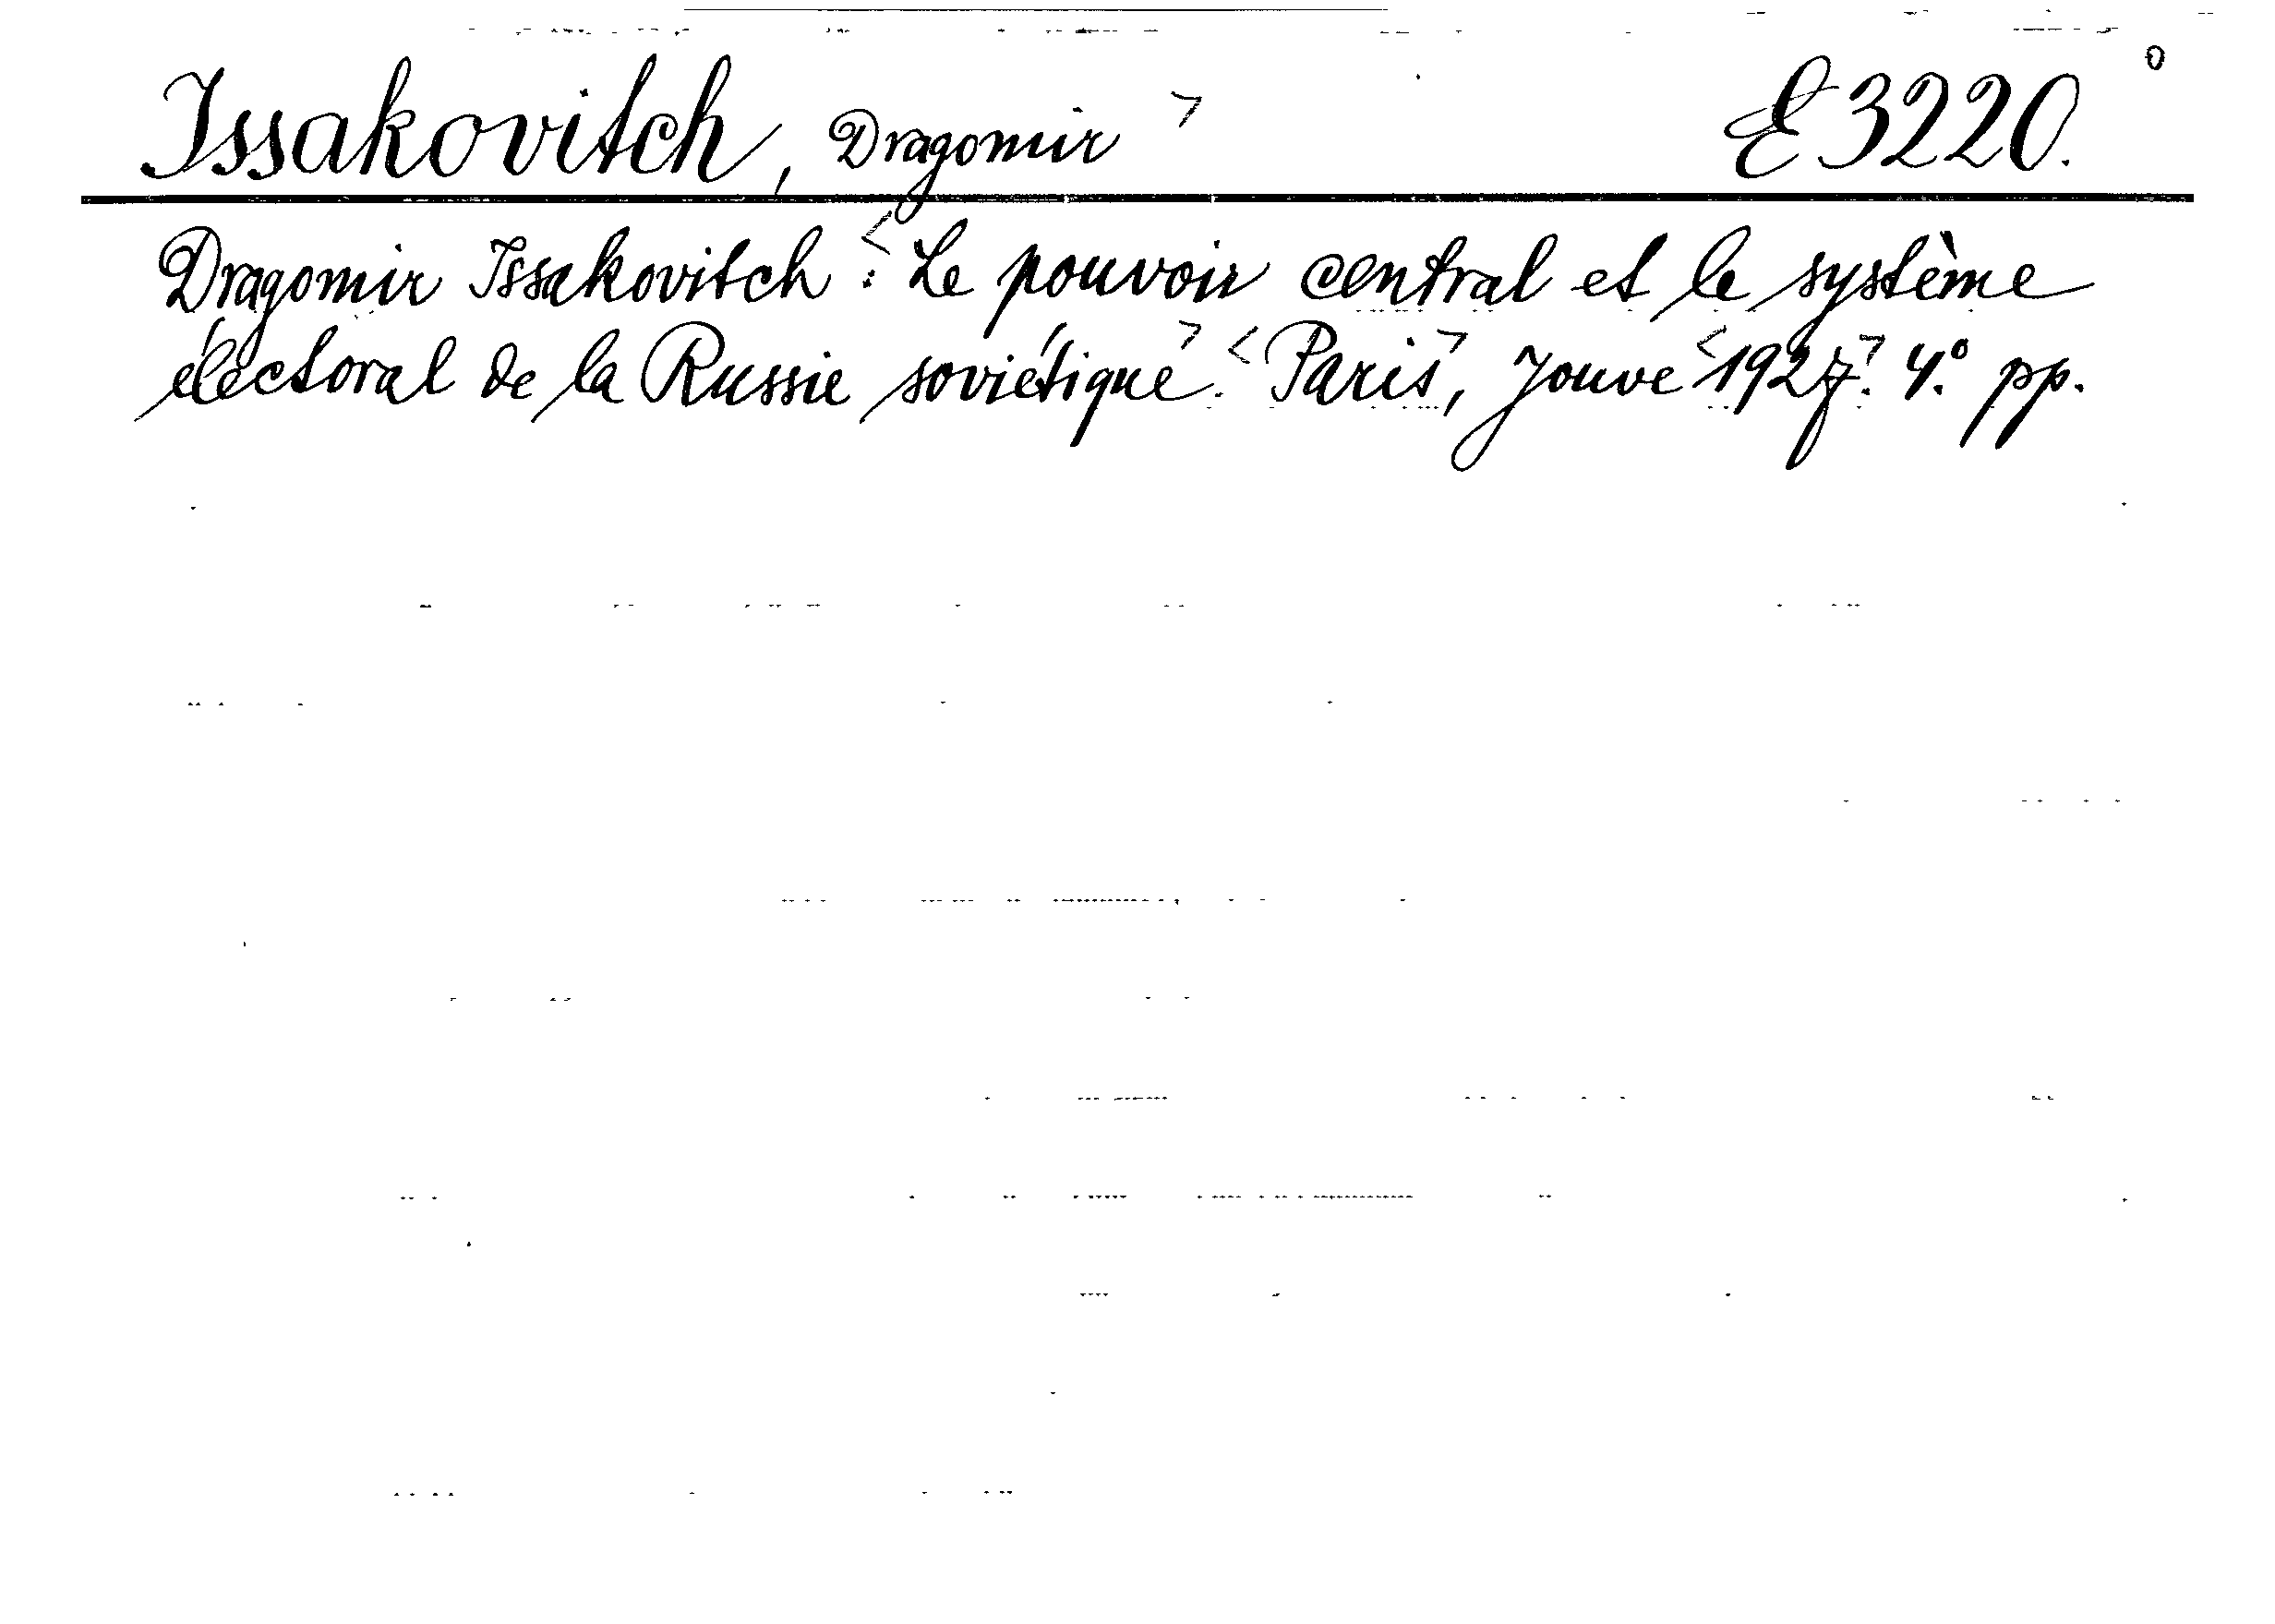 Issakovitch, Dragomir > E 3220. o
Dragomir Issakovitch : < Le pouvoir central et le système
électoral de la Russie soviétique >. < Paris >, Jouve < 1927 >. 4.° pp.